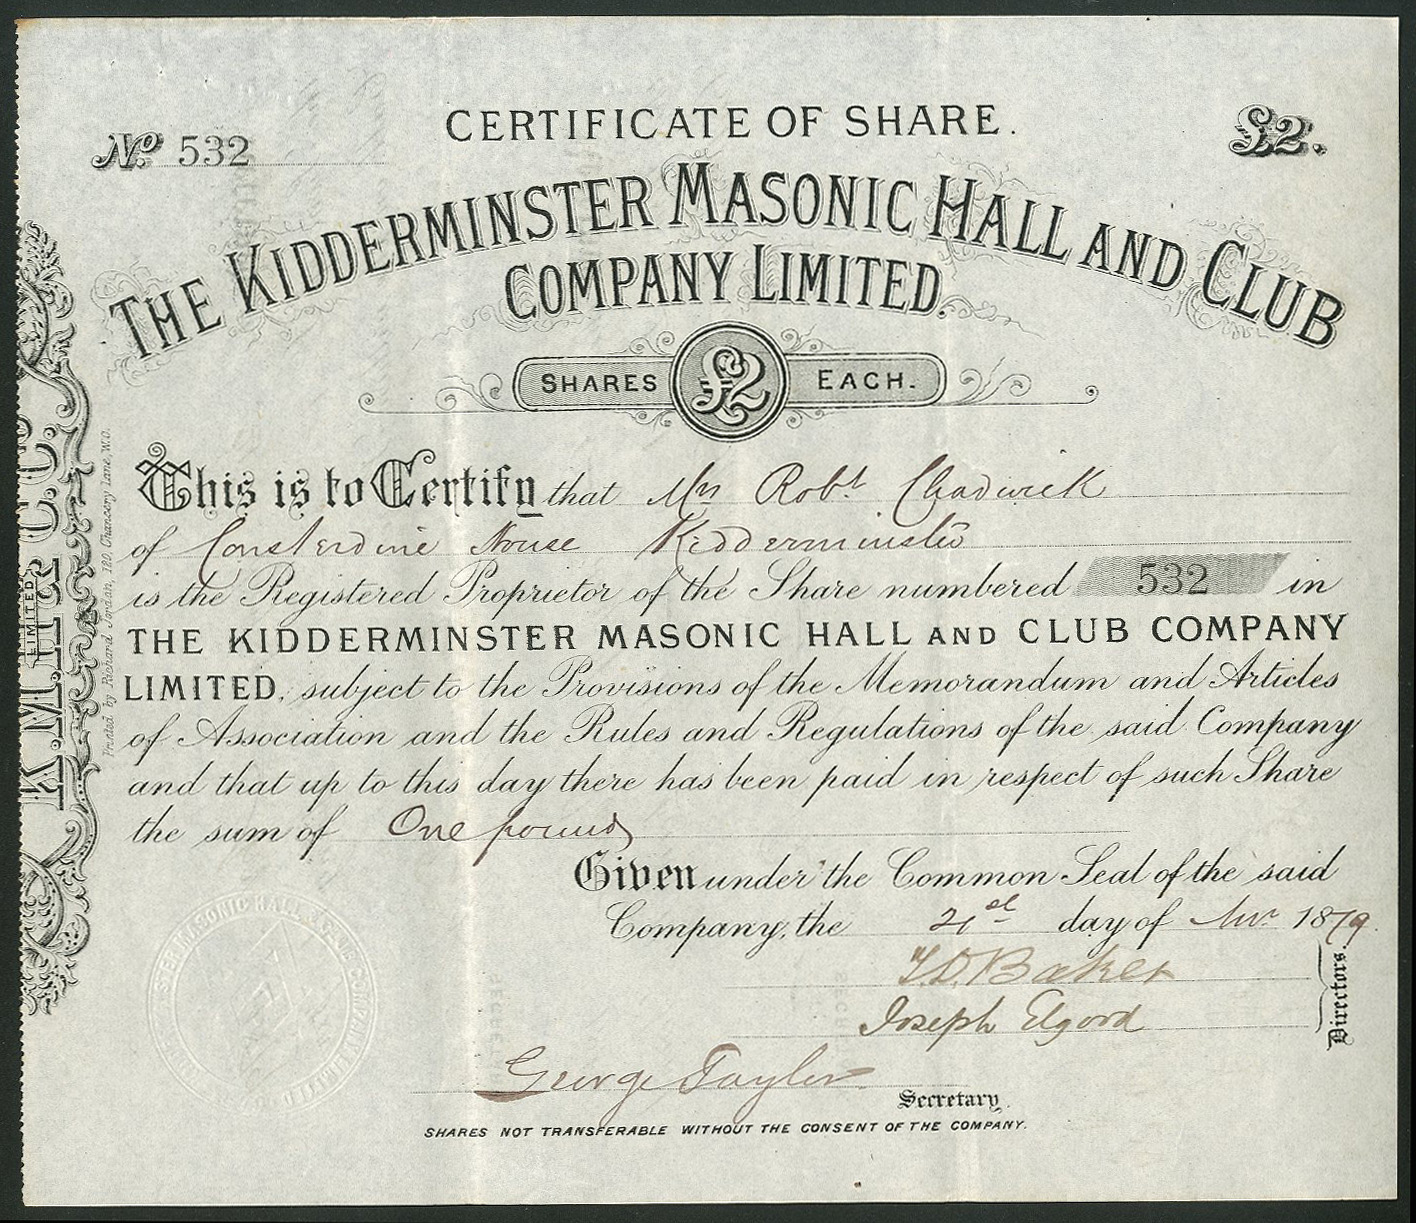 CERTIFICATE OF SHARE.
No. 532
£2.
THE KIDDERMINSTER MASONIC HALL AND CLUB
COMPANY LIMITED.
SHARES £2 EACH.
This is to Certify that Mrs Robt Chadwick
of Consterdine House Kidderminster
is the Registered Proprietor of the Share numbered 532 in
THE KIDDERMINSTER MASONIC HALL AND CLUB COMPANY
LIMITED, subject to the Provisions of the Memorandum and Articles
of Association and the Rules and Regulations of the said Company
and that up to this day there has been paid in respect of such Share
the sum of One pound
Given under the Common Seal of the said
Company, the 21st day of Novr 1879.
T.D. Baker
Joseph Elgood
Directors.
George Taylor
Secretary.
SHARES NOT TRANSFERABLE WITHOUT THE CONSENT OF THE COMPANY.
K.M.H. & C.C.
LIMITED
Printed by Richard Jordan, 120, Chancery Lane, W.C.
MASONIC HALL & CLUB COMPANY LIMITED